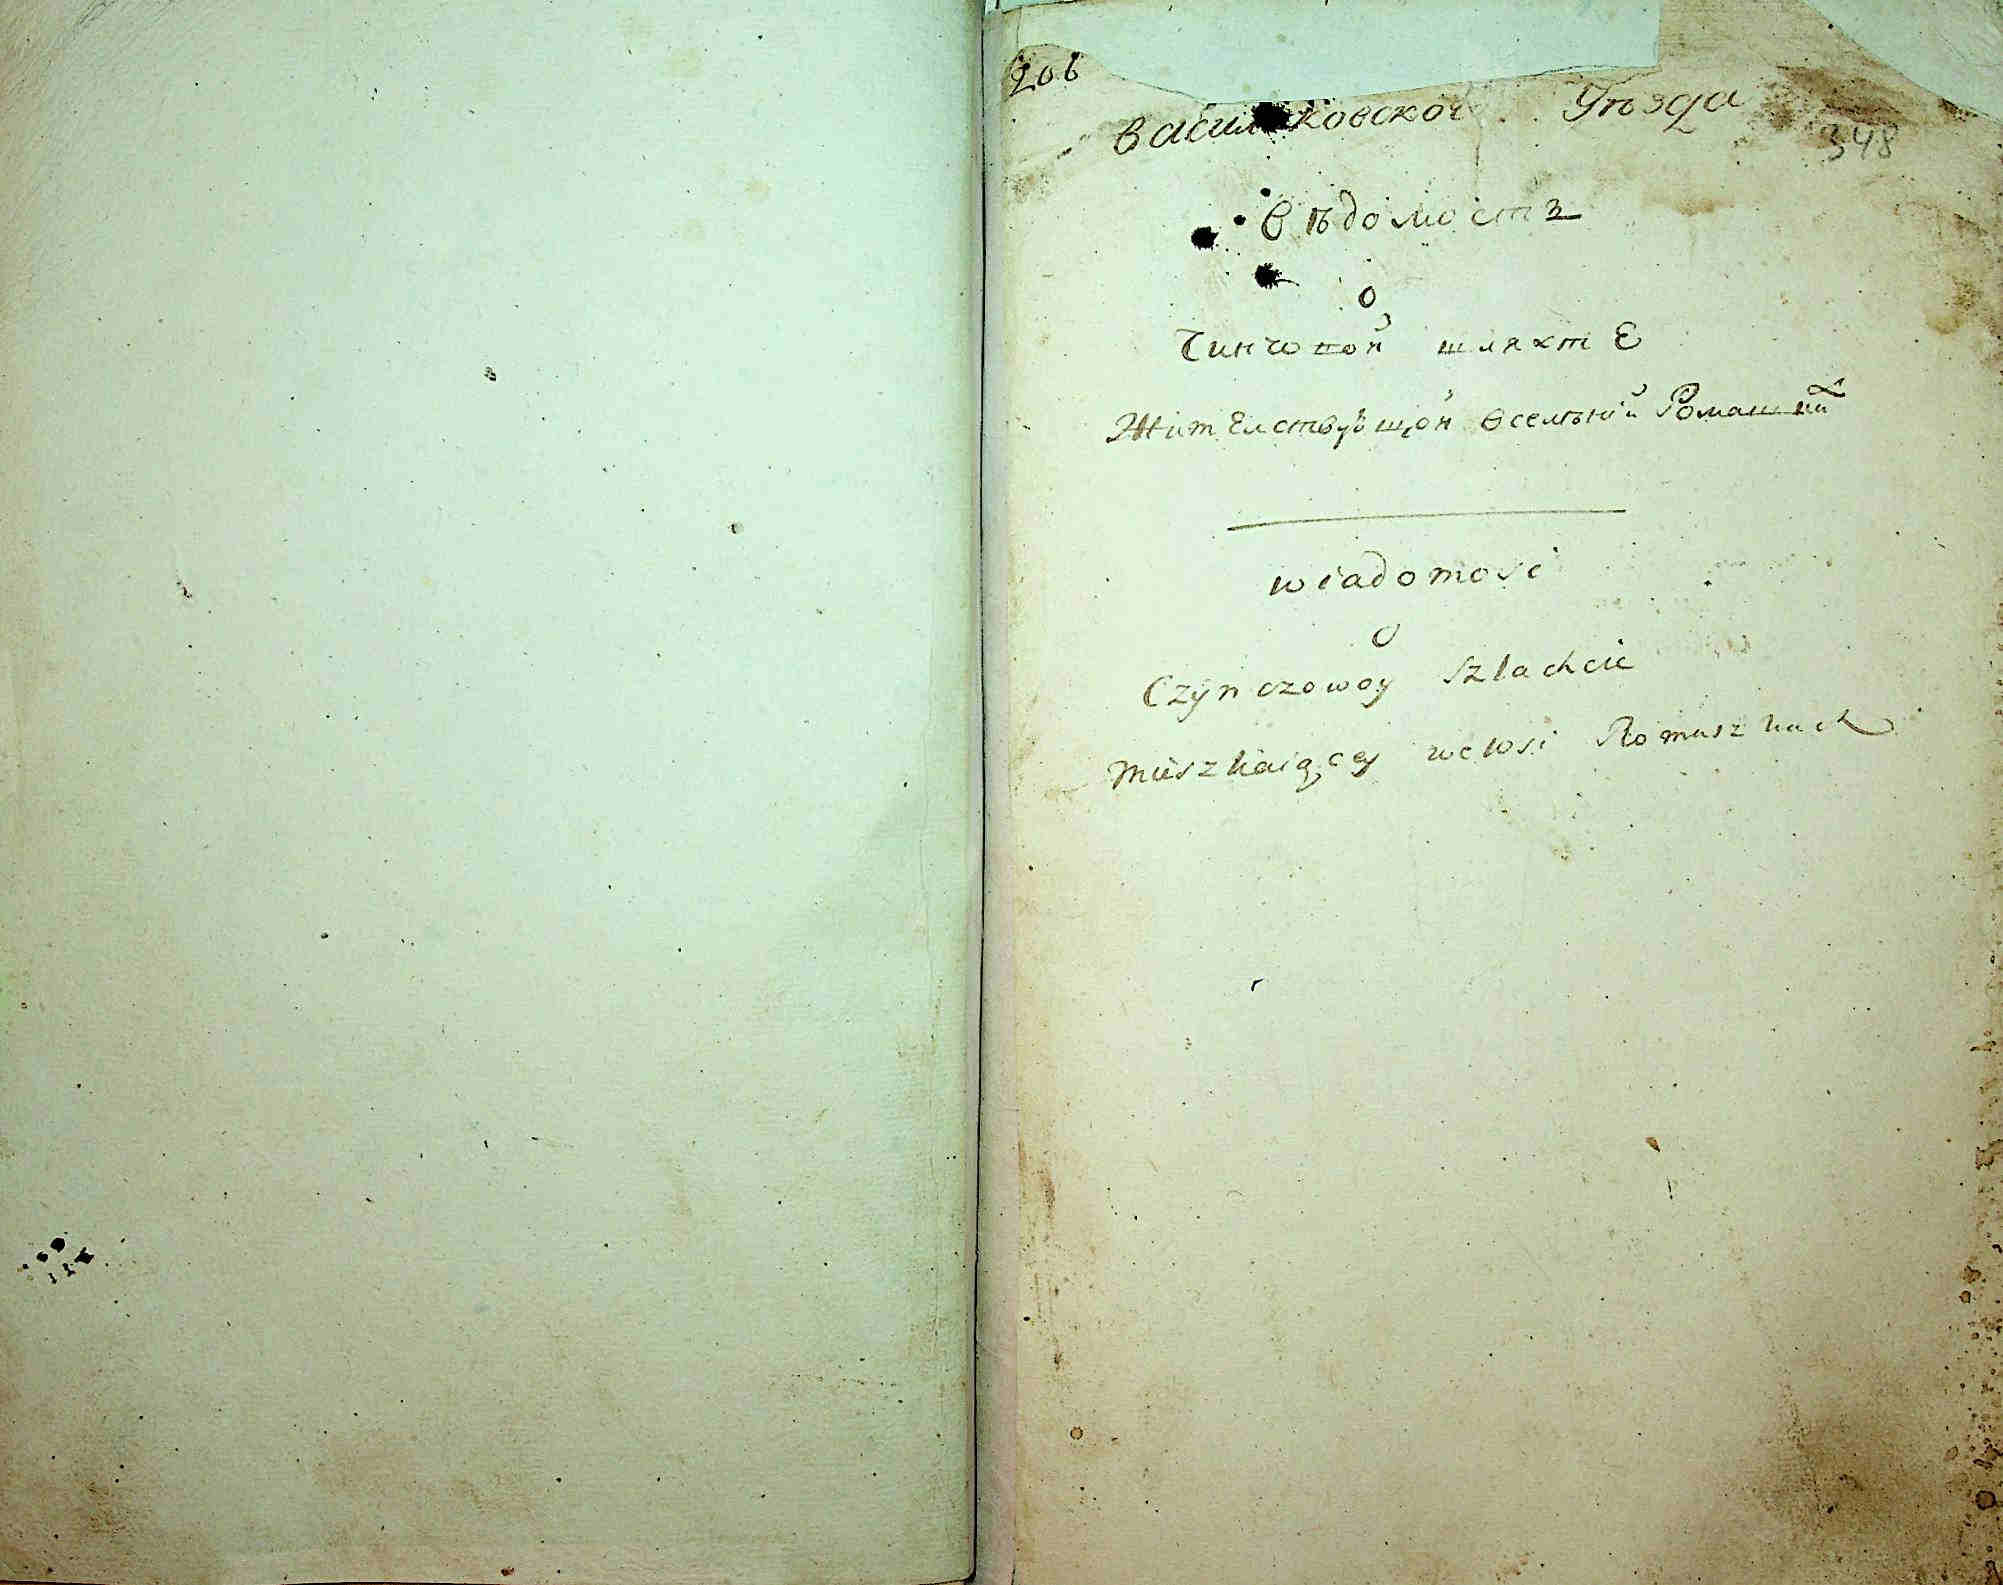 206
Василковского Уѣзда
348
Вѣдомость
О
Чиншовой шляхтЕ
ЖитЕлствующой
wiadomosc
O
Czynczowoy Szlachcie
Mieszkaiącey we wsi Romaszkach